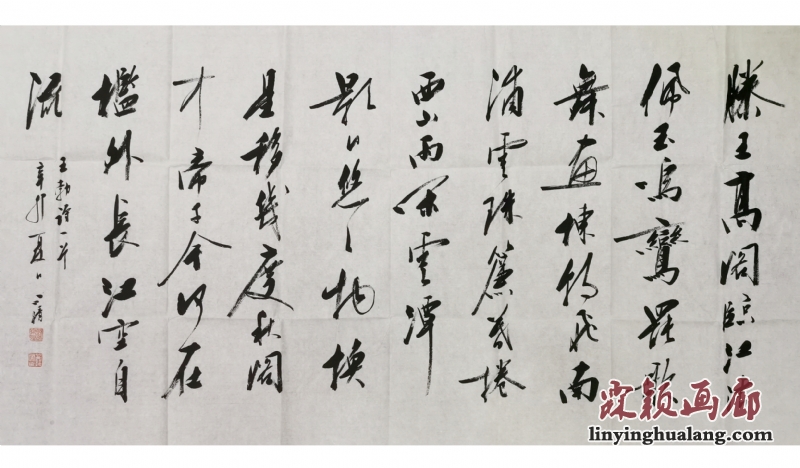 滕王高阁临江渚
佩玉鸣鸾罢歌
舞画栋朝飞南
浦雲珠簾暮捲
西山雨闲雲潭
影日悠々物换
星移幾度秋阁
中帝子今何在
檻外長江空自
流
王勃诗一首
辛丑夏日
霖颖画廊
linyinghualang.com